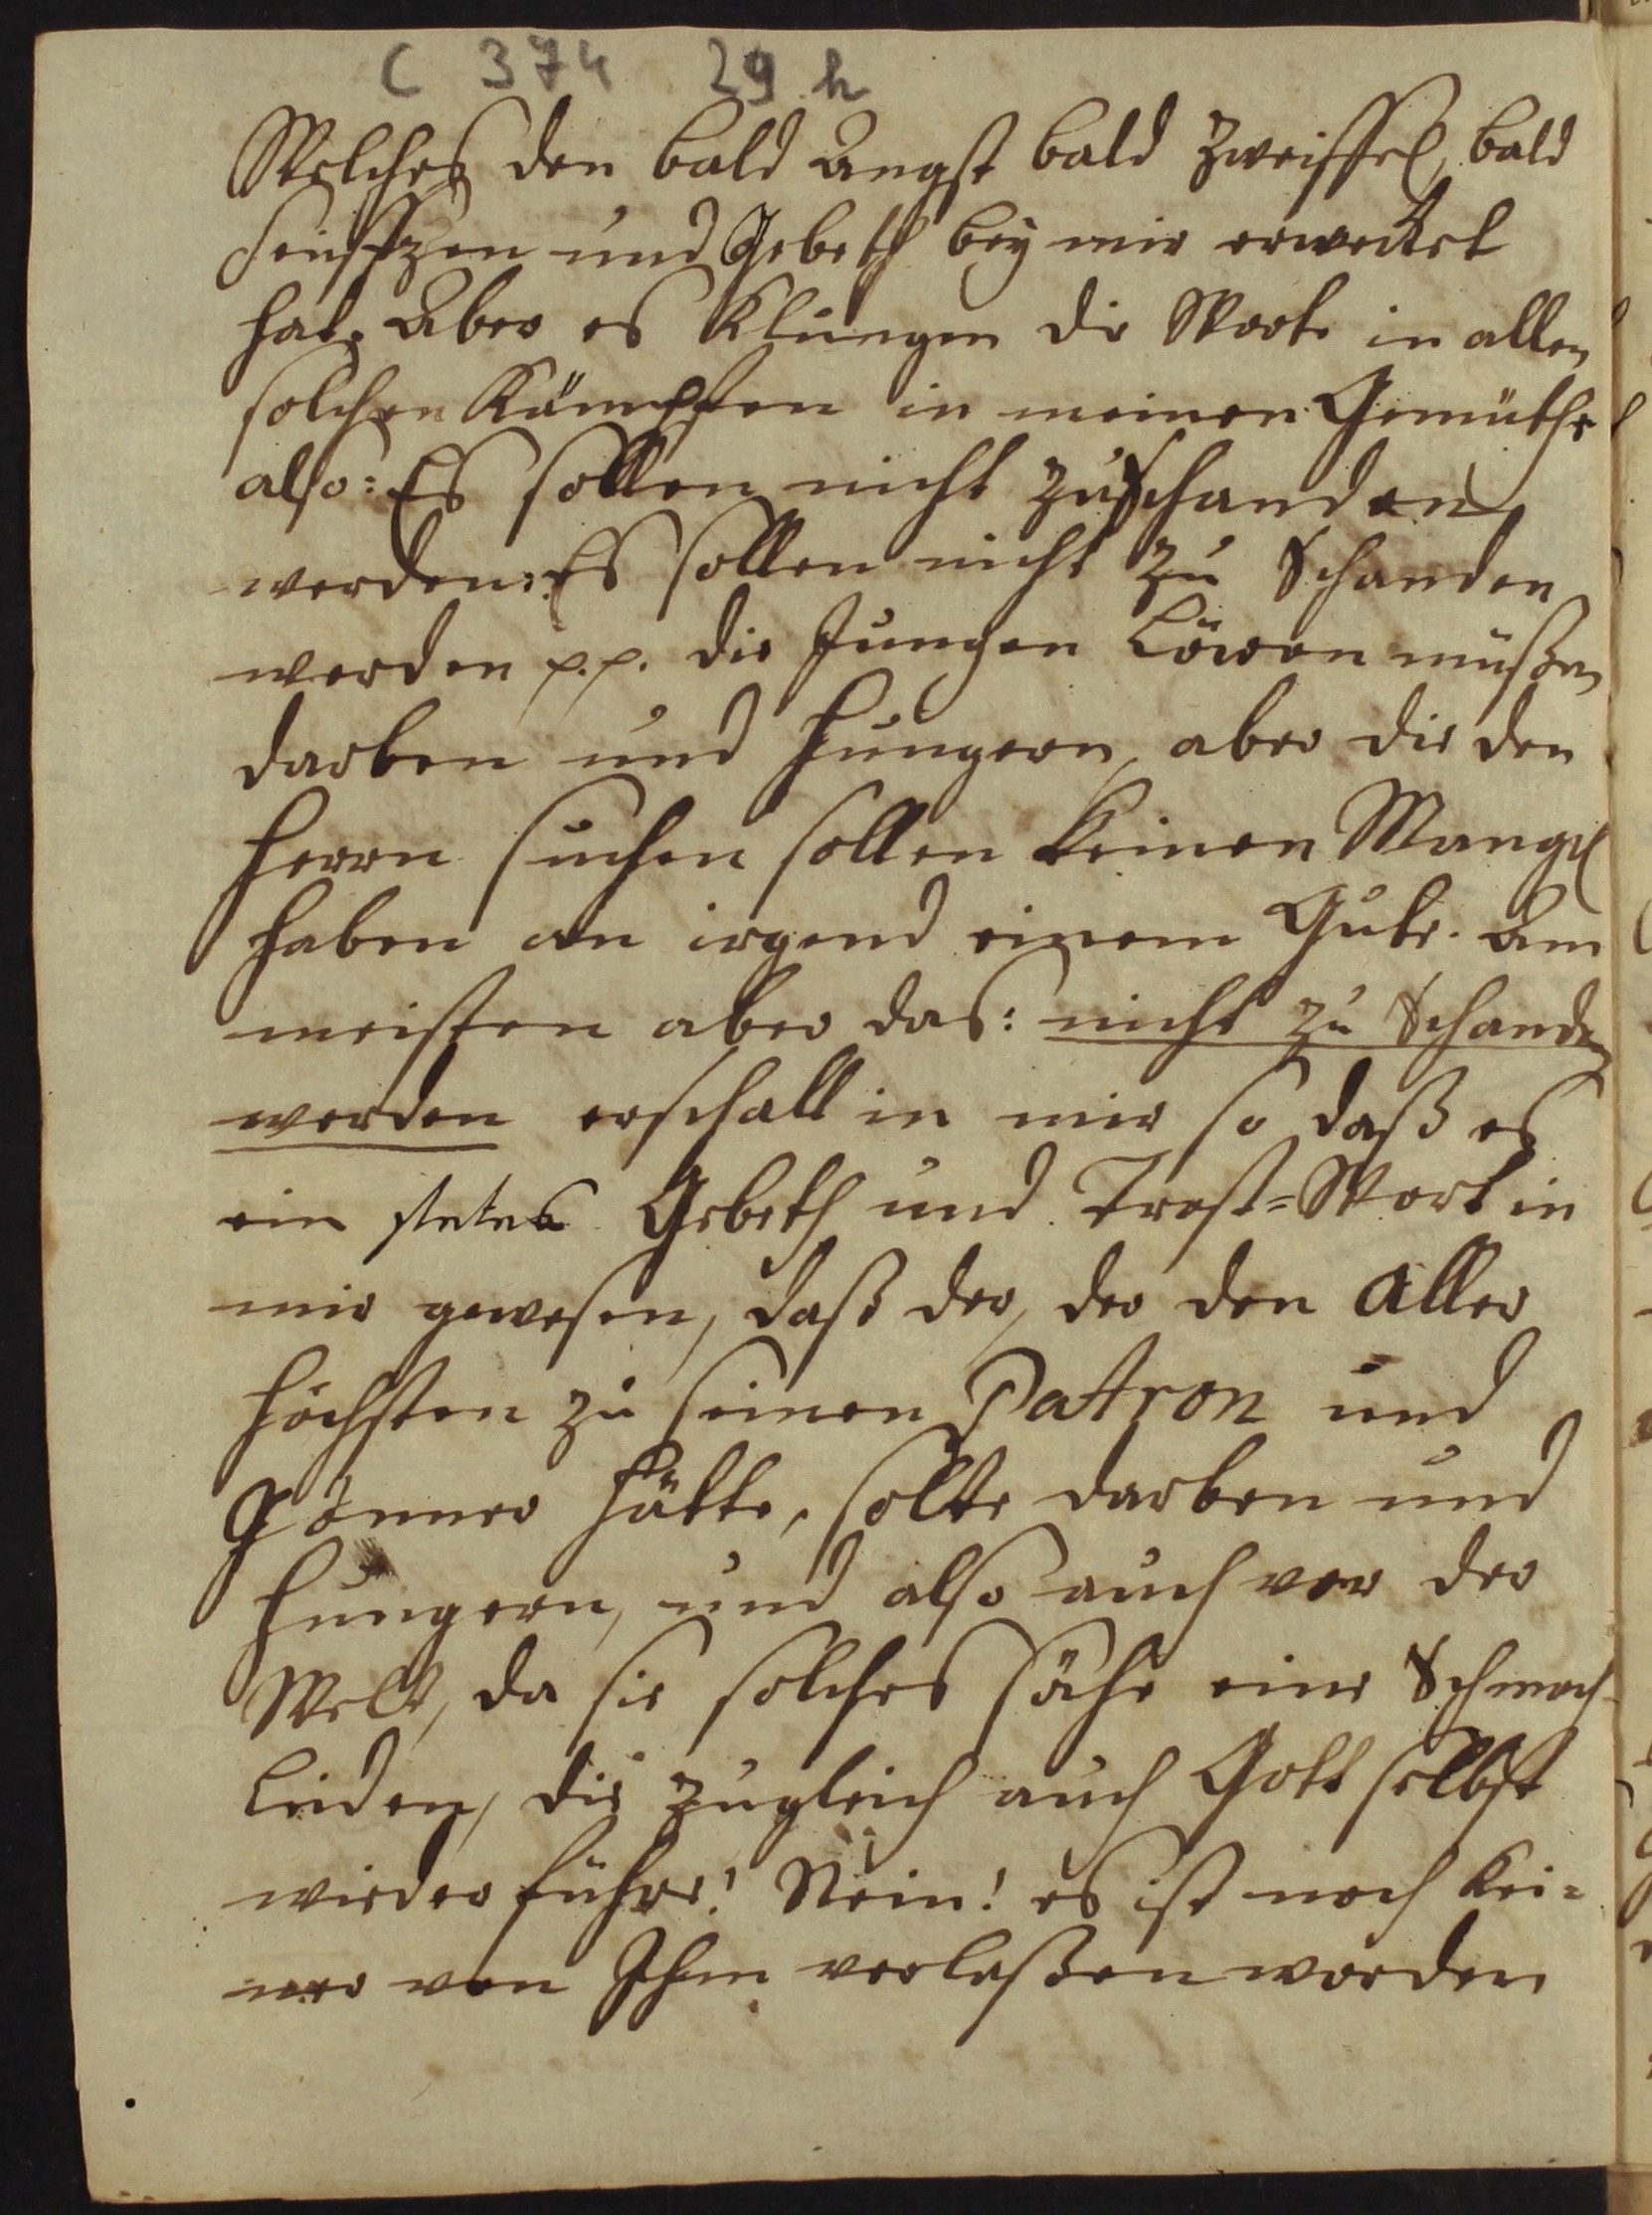 C 374 29 h
Welches den bald Angst bald Zweiffel, bald
Seuffzen und Gebeth bey mir erwecket
hat. Aber es Klungen die Worte in allen
solchen Kämpffen in meinen Gemüthe
also: Es sollen nicht zu Schanden
werden: Es sollen nicht zu Schanden
werden p.p. die Jungen Löwen müßen
darben und Hungern, aber die den
Herrn suchen sollen keinen Mangel
haben an irgend einem Gute. Am
meisten aber das: nicht zu Schanden
werden erschall in mir so daß es
ein stetes Gebeth und Trost=Wort in
mir gewesen, daß der, der den Aller
höchsten zu seinen Patron und
Gönner hätte, solte darben und
Hungern, und also auch vor der
Welt, da sie solches sähe eine Schmach
Leiden, die zugleich auch Gott selbst
wieder führe! Nein! es ist noch kei=
ner von Ihm verlaßen worden